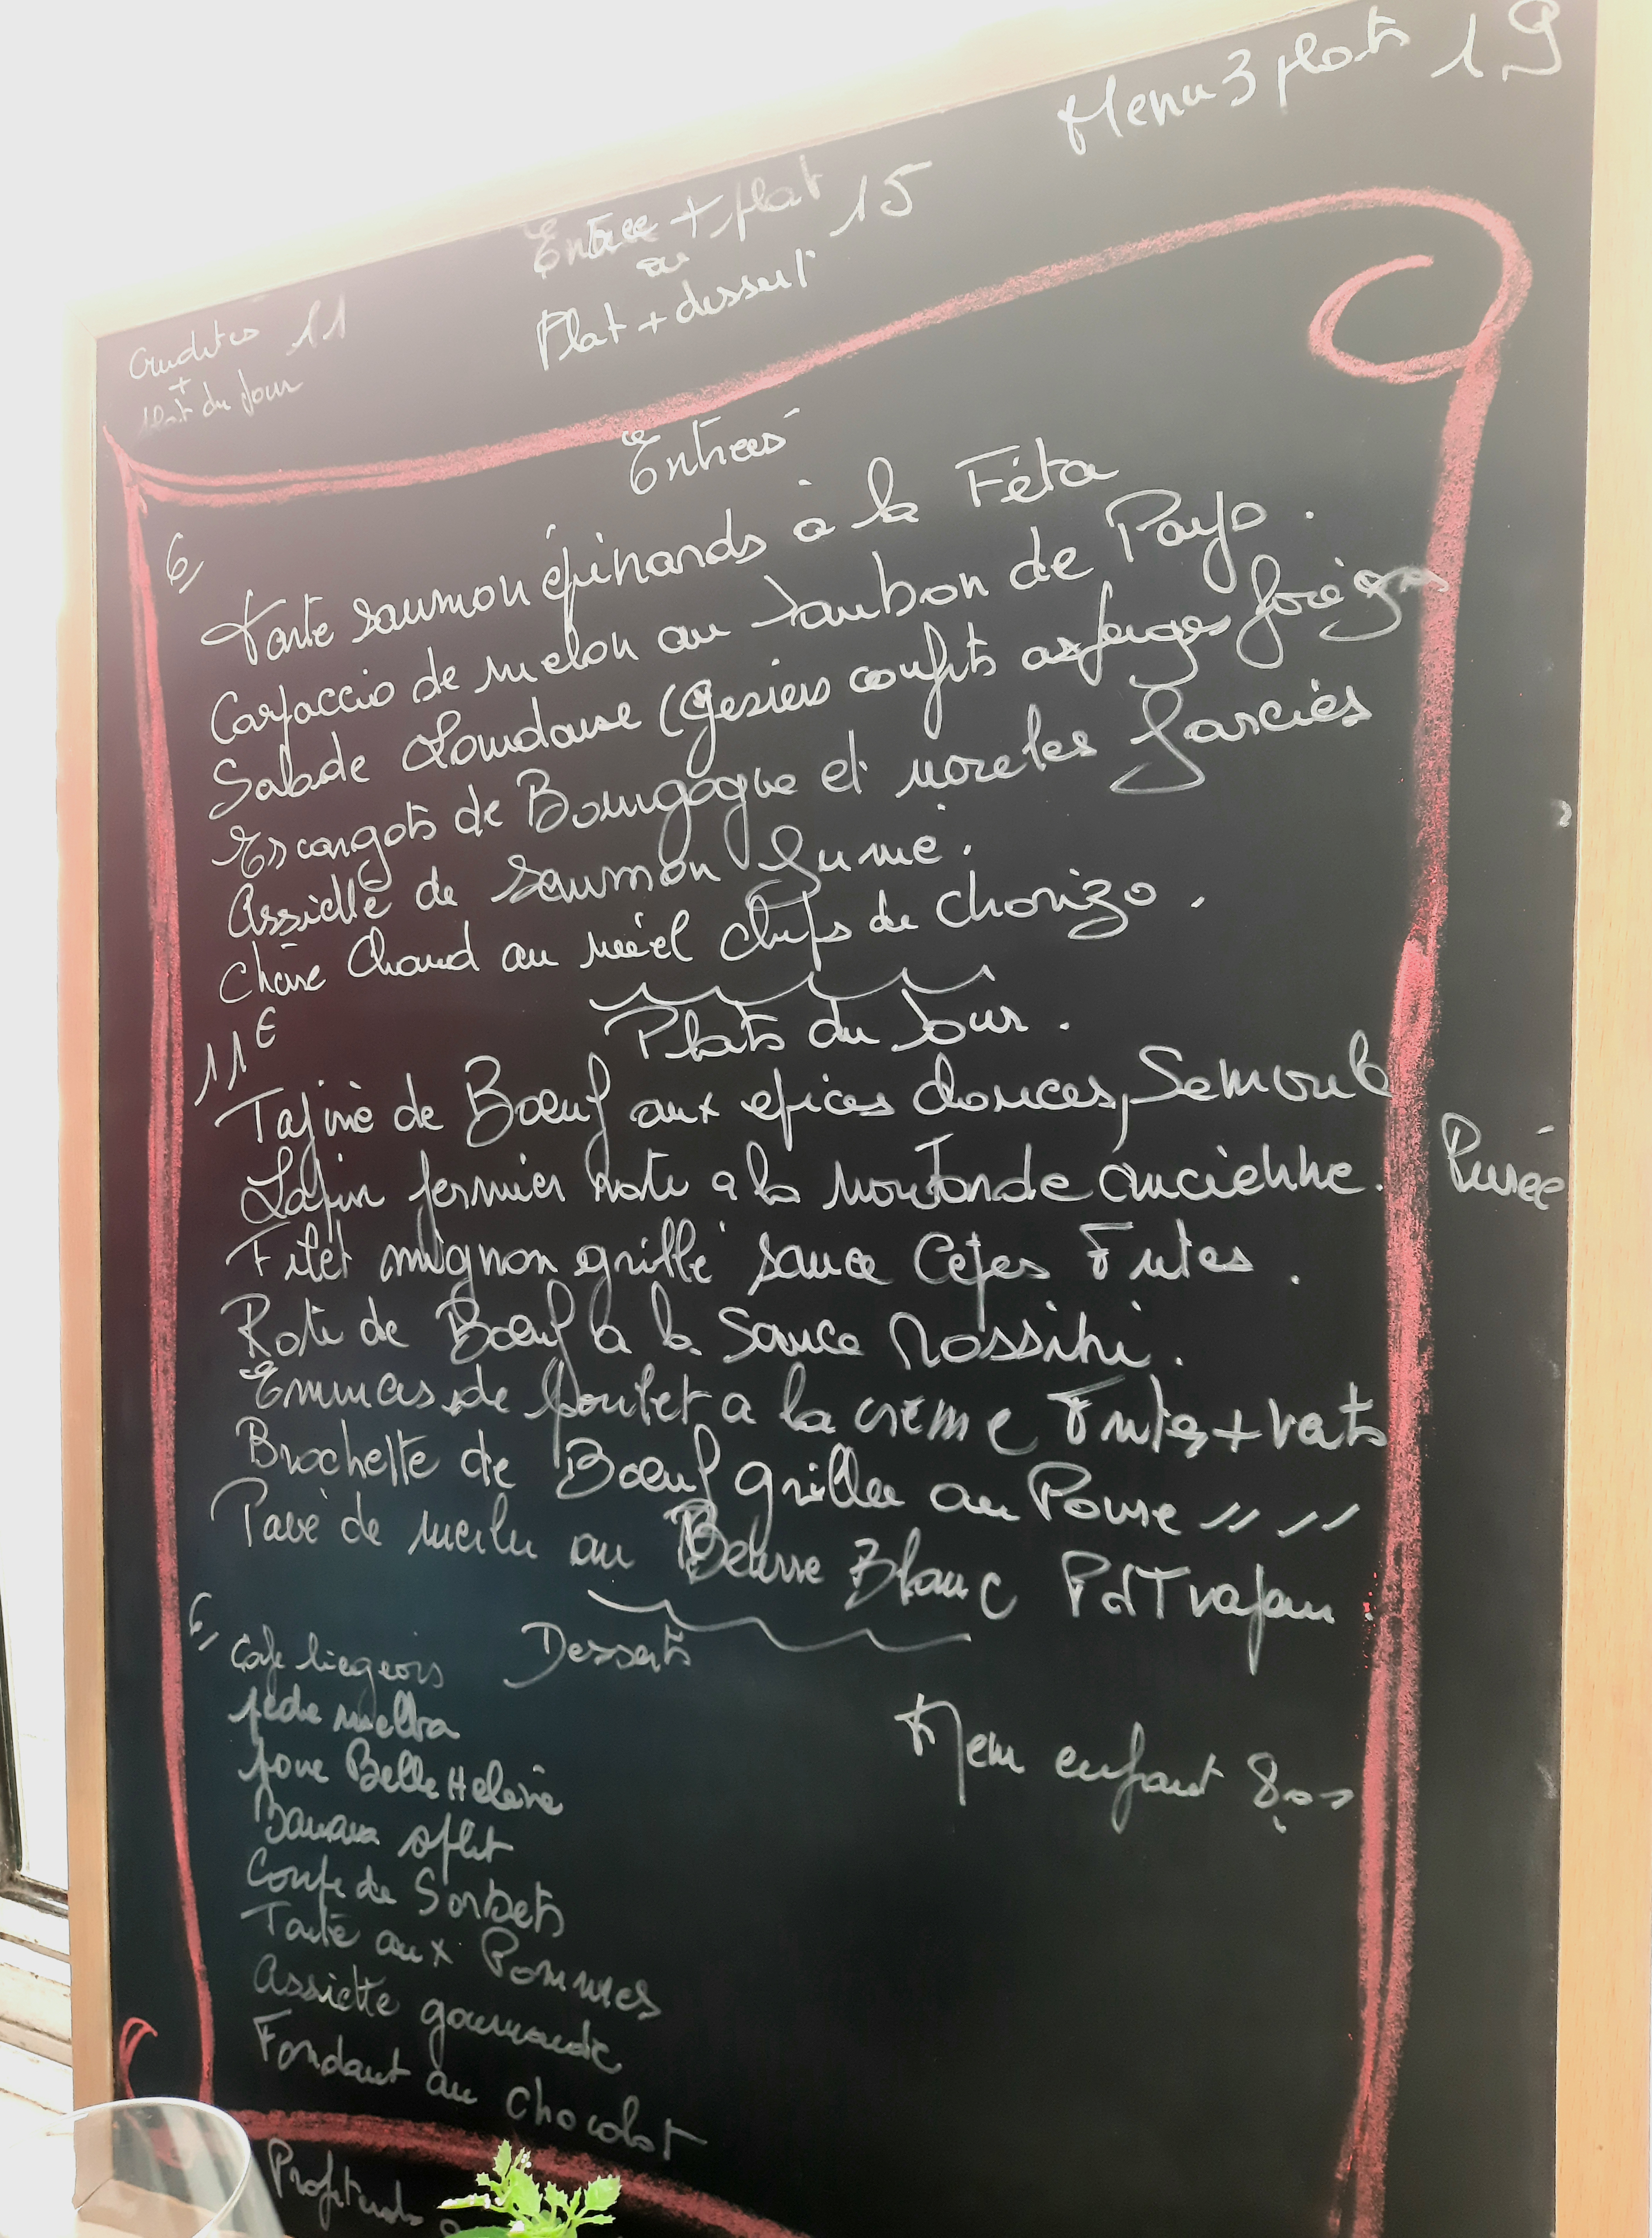 Menu 3 plats 19
Entree + plat 15
ou
Plat + dessert
Crudites 11
+
plat du Jour
Entrées
6,
Tarte saumon épinards à la Féta
Carpaccio de melon au Jambon de Pays.
Salade Landaise (Gesiers confits asperges foie gras
Escargots de Bourgogne et farcies
Assiette de Saumon fumé.
Chèvre Chaud au miel chips de chorizo.
11€
Plats du Jour.
Tajine de Bœuf aux epices douces, Semoule
Lapin fermier roti a la moutarde ancienne. Purée
Filet mignon grillé sauce Cepes Frites.
Roti de Bœuf à la Sauce Rossini.
Emincés de poulet a la crème Frites +
Brochette de Bœuf grillee au Poivre " "
Pavé de au Beurre Blanc PdT vapeur.
6,
Desserts
Cafe liegeois
peche melba
poire Belle Helène
Banana split
Coupe de Sorbets
Tarte aux Pommes
Assiette gourmande
Fondant au chocolat
Menu enfant 8,00